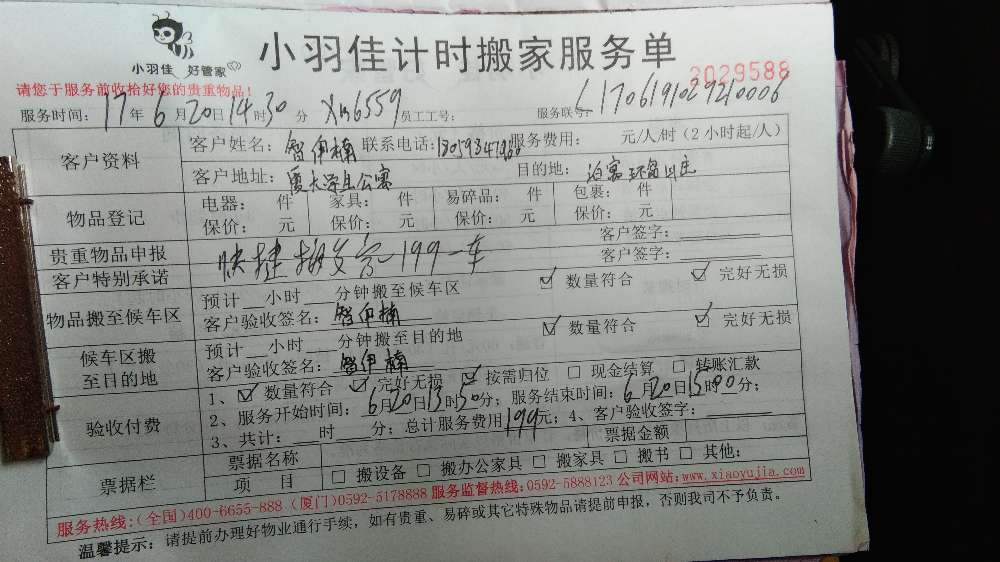 小羽佳 好管家
小羽佳计时搬家服务单
2029588
请您于服务前收拾好您的贵重物品!
服务时间: 17年6月20日14时30分 Xm6559 员工工号: 服务联号: L1706191029210006
客户资料
客户姓名: 智伊楠 联系电话: 服务费用: 元/人/时(2小时起/人)
客户地址: 厦大学生公寓 目的地: 泊寓
物品登记
电器: 件 家具: 件 易碎品: 件 包裹: 件
保价: 元 保价: 元 保价: 元 保价: 元
贵重物品申报 客户签字:
客户特别承诺 客户签字:
快捷搬 199一车
物品搬至候车区
预计 小时 分钟搬至候车区 ☑ 数量符合 ☑ 完好无损
客户验收签名: 智伊楠
候车区搬至目的地
预计 小时 分钟搬至目的地 ☑ 数量符合 ☑ 完好无损
客户验收签名: 智伊楠
验收付费
1、☑ 数量符合 ☑ 完好无损 ☑ 按需归位 □ 现金结算 □ 转账汇款
2、服务开始时间: 6月20日13时50分; 服务结束时间: 6月20日15时00分;
3、共计: 时 分; 总计服务费用199元; 4、客户验收签字:
票据栏
票据名称 票据金额
项 目 □ 搬设备 □ 搬办公家具 □ 搬家具 □ 搬书 □ 其他:
服务热线:(全国)400-6655-888 (厦门)0592-5178888 服务监督热线:0592-5888123 公司网站:www.xiaoyujia.com
温馨提示: 请提前办理好物业通行手续, 如有贵重、易碎或其它特殊物品请提前申报, 否则我司不予负责。